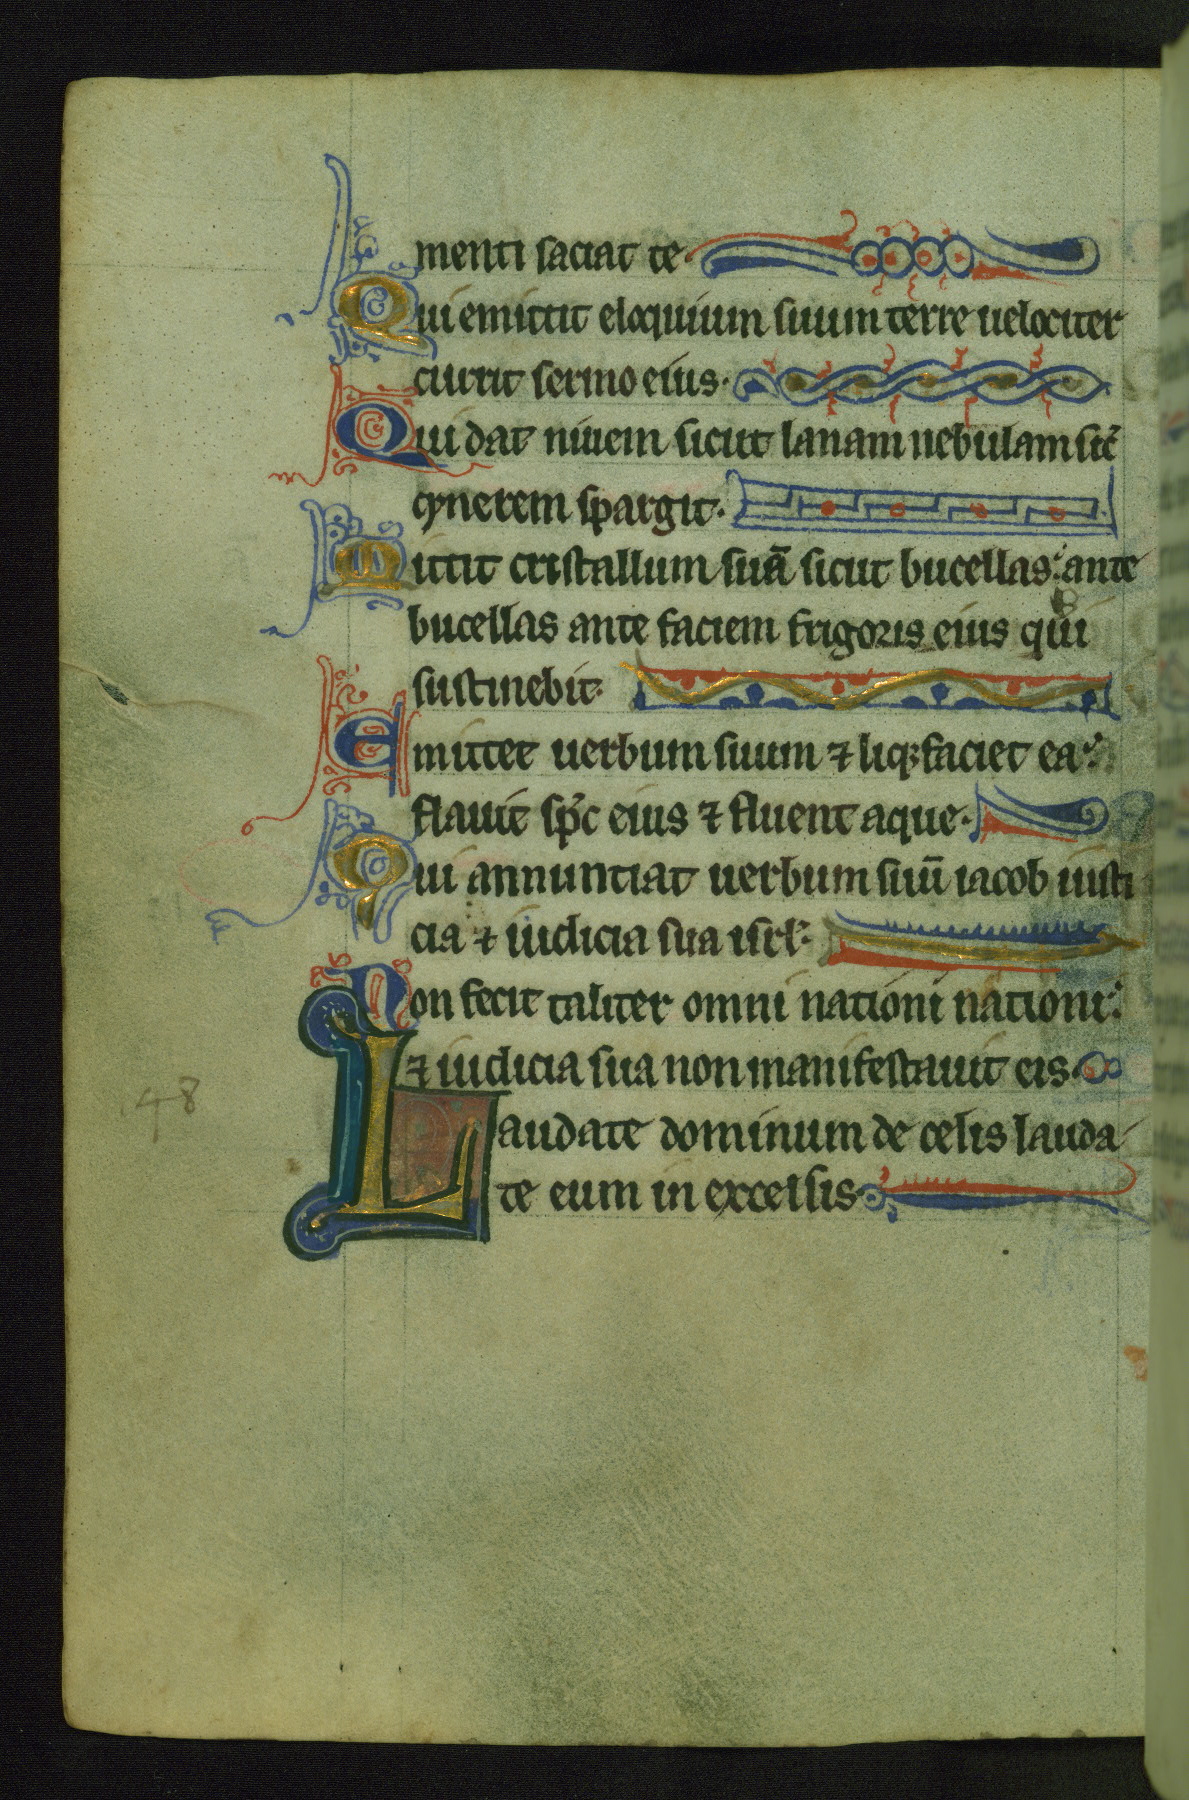 menti saciat te
Qui emittit eloquium suum terre uelociter
currit sermo eius.
Qui dat niuem sicut lanam nebulam sic̄
cynerem spargit.
Mittit cristallum suā sicut bucellas: ante
bucellas ante faciem frigoris eius qui
sustinebit.
Emittet uerbum suum ⁊ liq; faciet ea:
flauit sp̄c eius ⁊ fluent aque.
Qui annuntiat uerbum suū iacob iusti
cia ⁊ iudicia sua isrl.
Non fecit taliter omni nationi nationi:
⁊ iudicia sua non manifestauit eis.
148
Laudate dominum de celis lauda
te eum in excelsis.